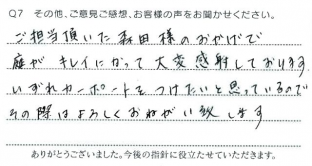 Q7 その他、ご意見ご感想、お客様の声をお聞かせください。
ご担当頂いた森田様のおかげで
庭がキレイになって大変感謝しております
いずれカーポートをつけたいと思っているので
その際はよろしくおねがい致します
ありがとうございました。今後の指針に役立たせていただきます。